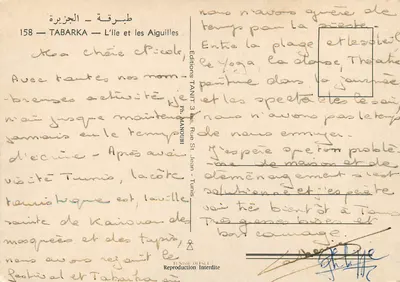 طبرقة - الجزيرة
158 — TABARKA — L'Ile et les Aiguilles
Ma chère Nicole,
Avec toutes nos nom-
breuses activités j'
n'ai jusque maintenant
jamais eu le temps
d'écrire - Après avoir
visité Tunis, la côte
touristique est, la ville
sainte de Kairouan des
mosquées et des tapis,
nous avons rejoint le
festival et Tabarka où
Editions TANIT 3 Rue St. Jean - Tunis
Reproduction Interdite
nous n'avons
temps par la
Entre la plage et le soleil
le Yoga, la danse, Théâtre
peinture dans la journée
et les spectacles le soir
nous n'avons pas le temps
de nous ennuyer.
J'espère que ton problème
de maison et de
déménagement s'est
solutionné et j'espère
voir très bientôt à
bon courage.